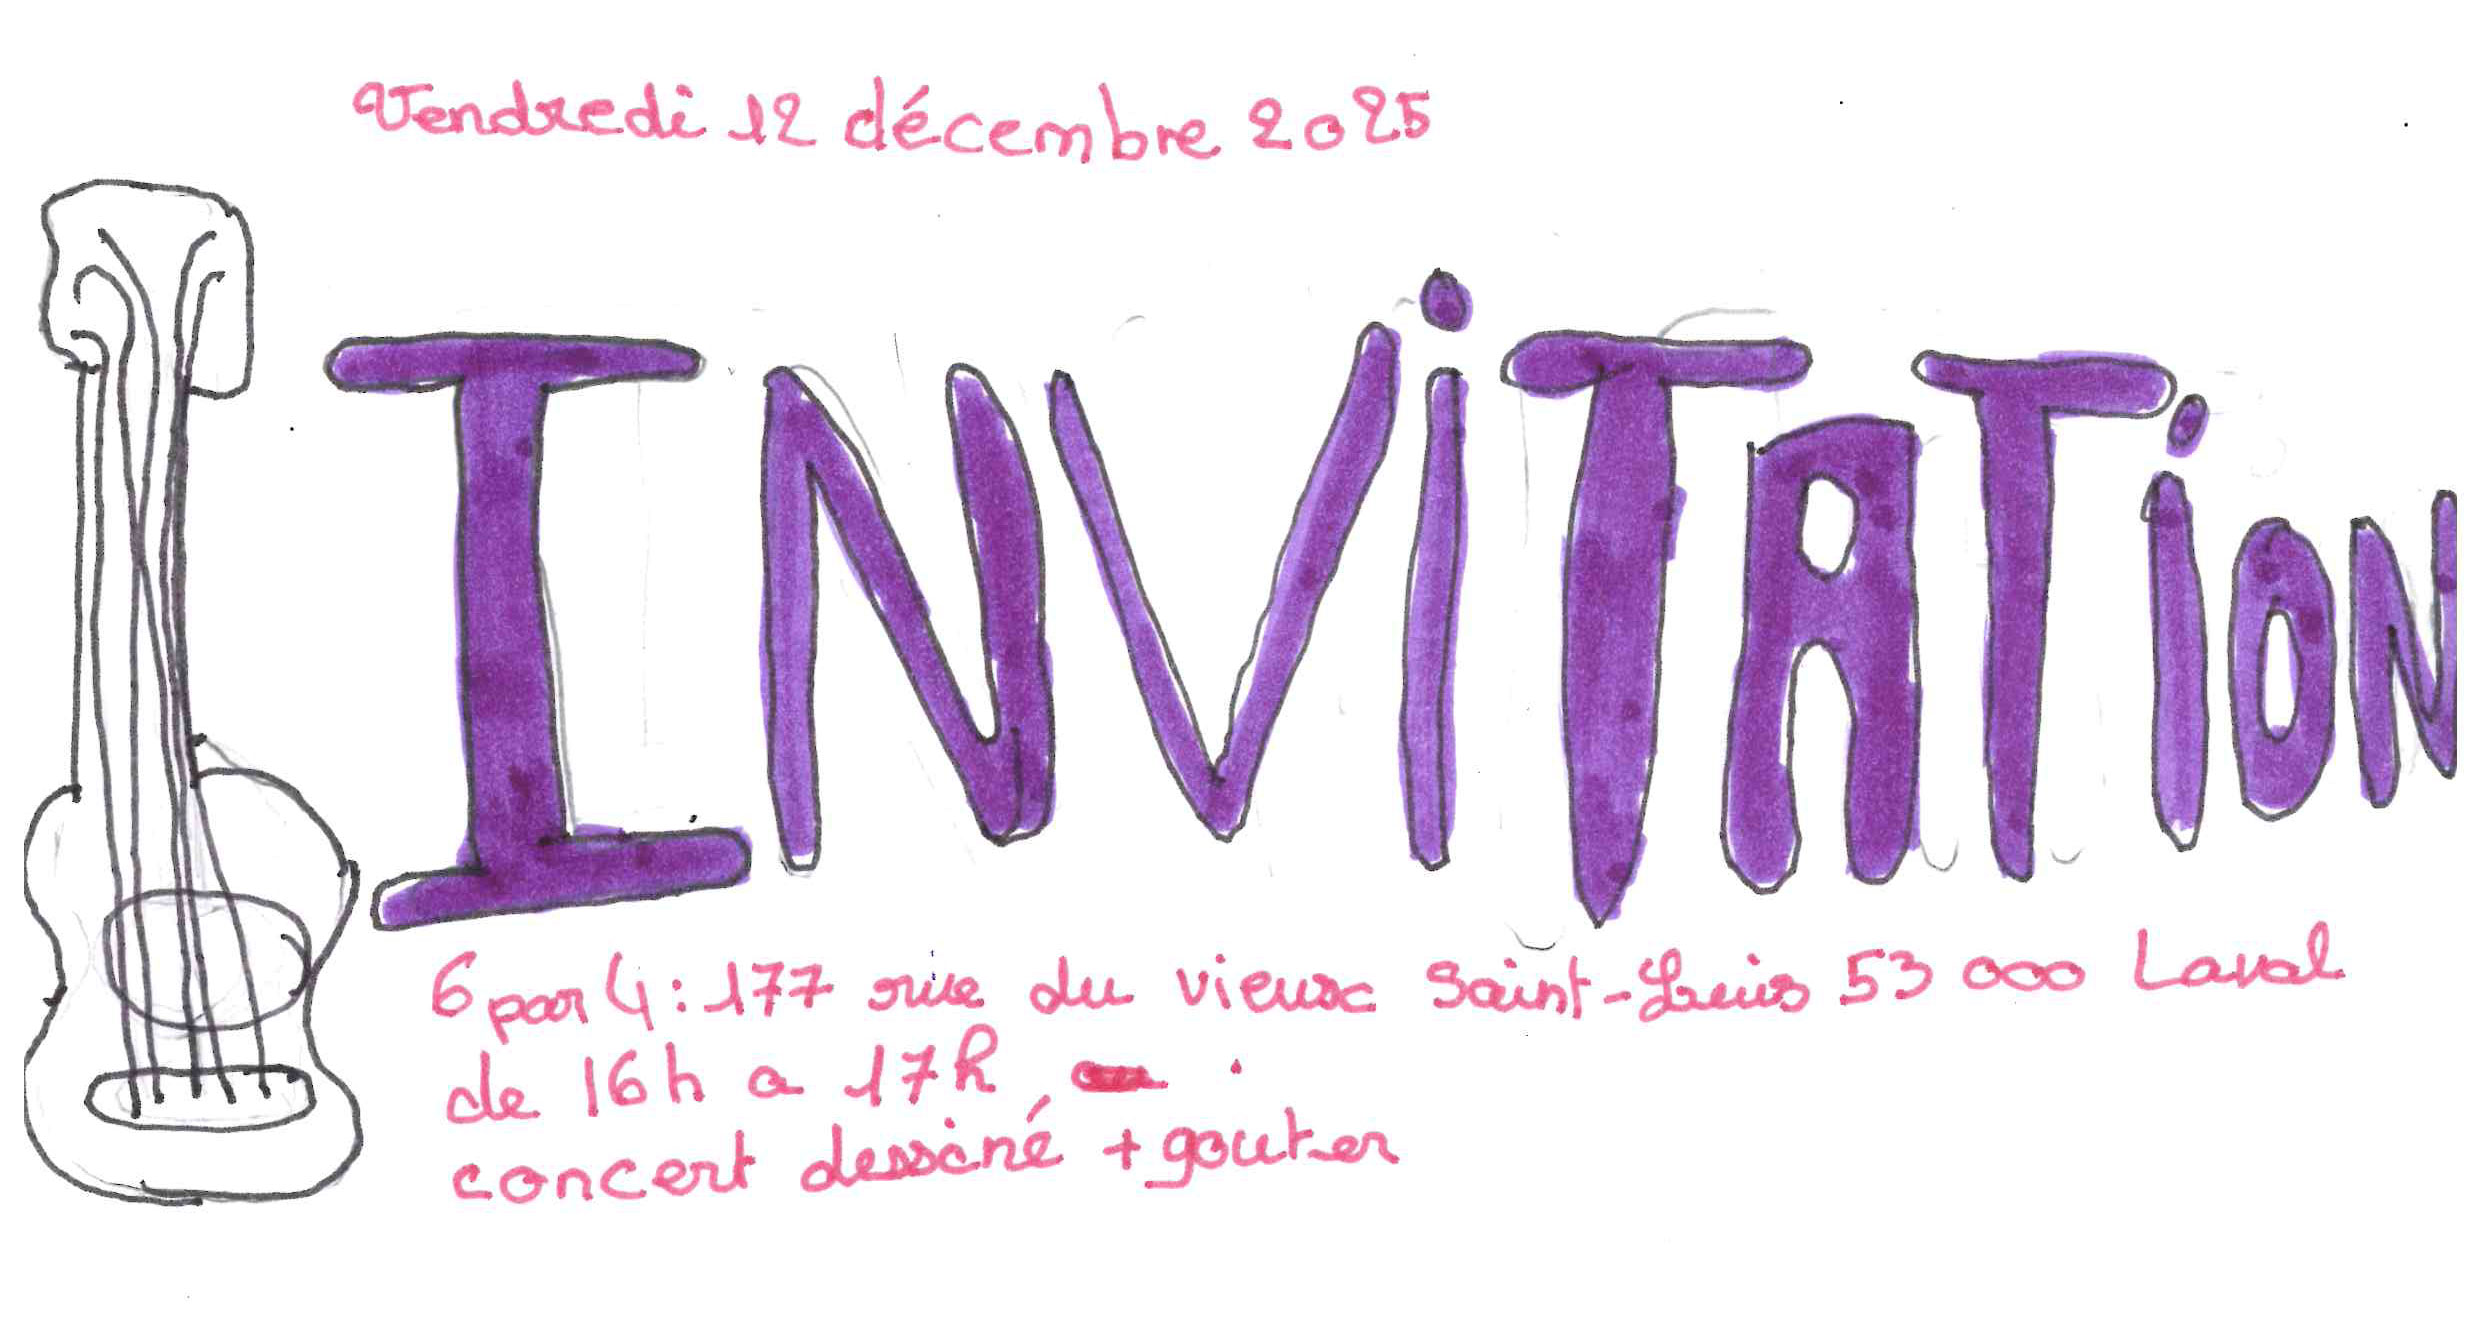 Vendredi 12 décembre 2025
INViTATiON
6 par 4 : 177 rue du vieux Saint-Louis 53 000 Laval
de 16h a 17h
concert dessiné + gouter